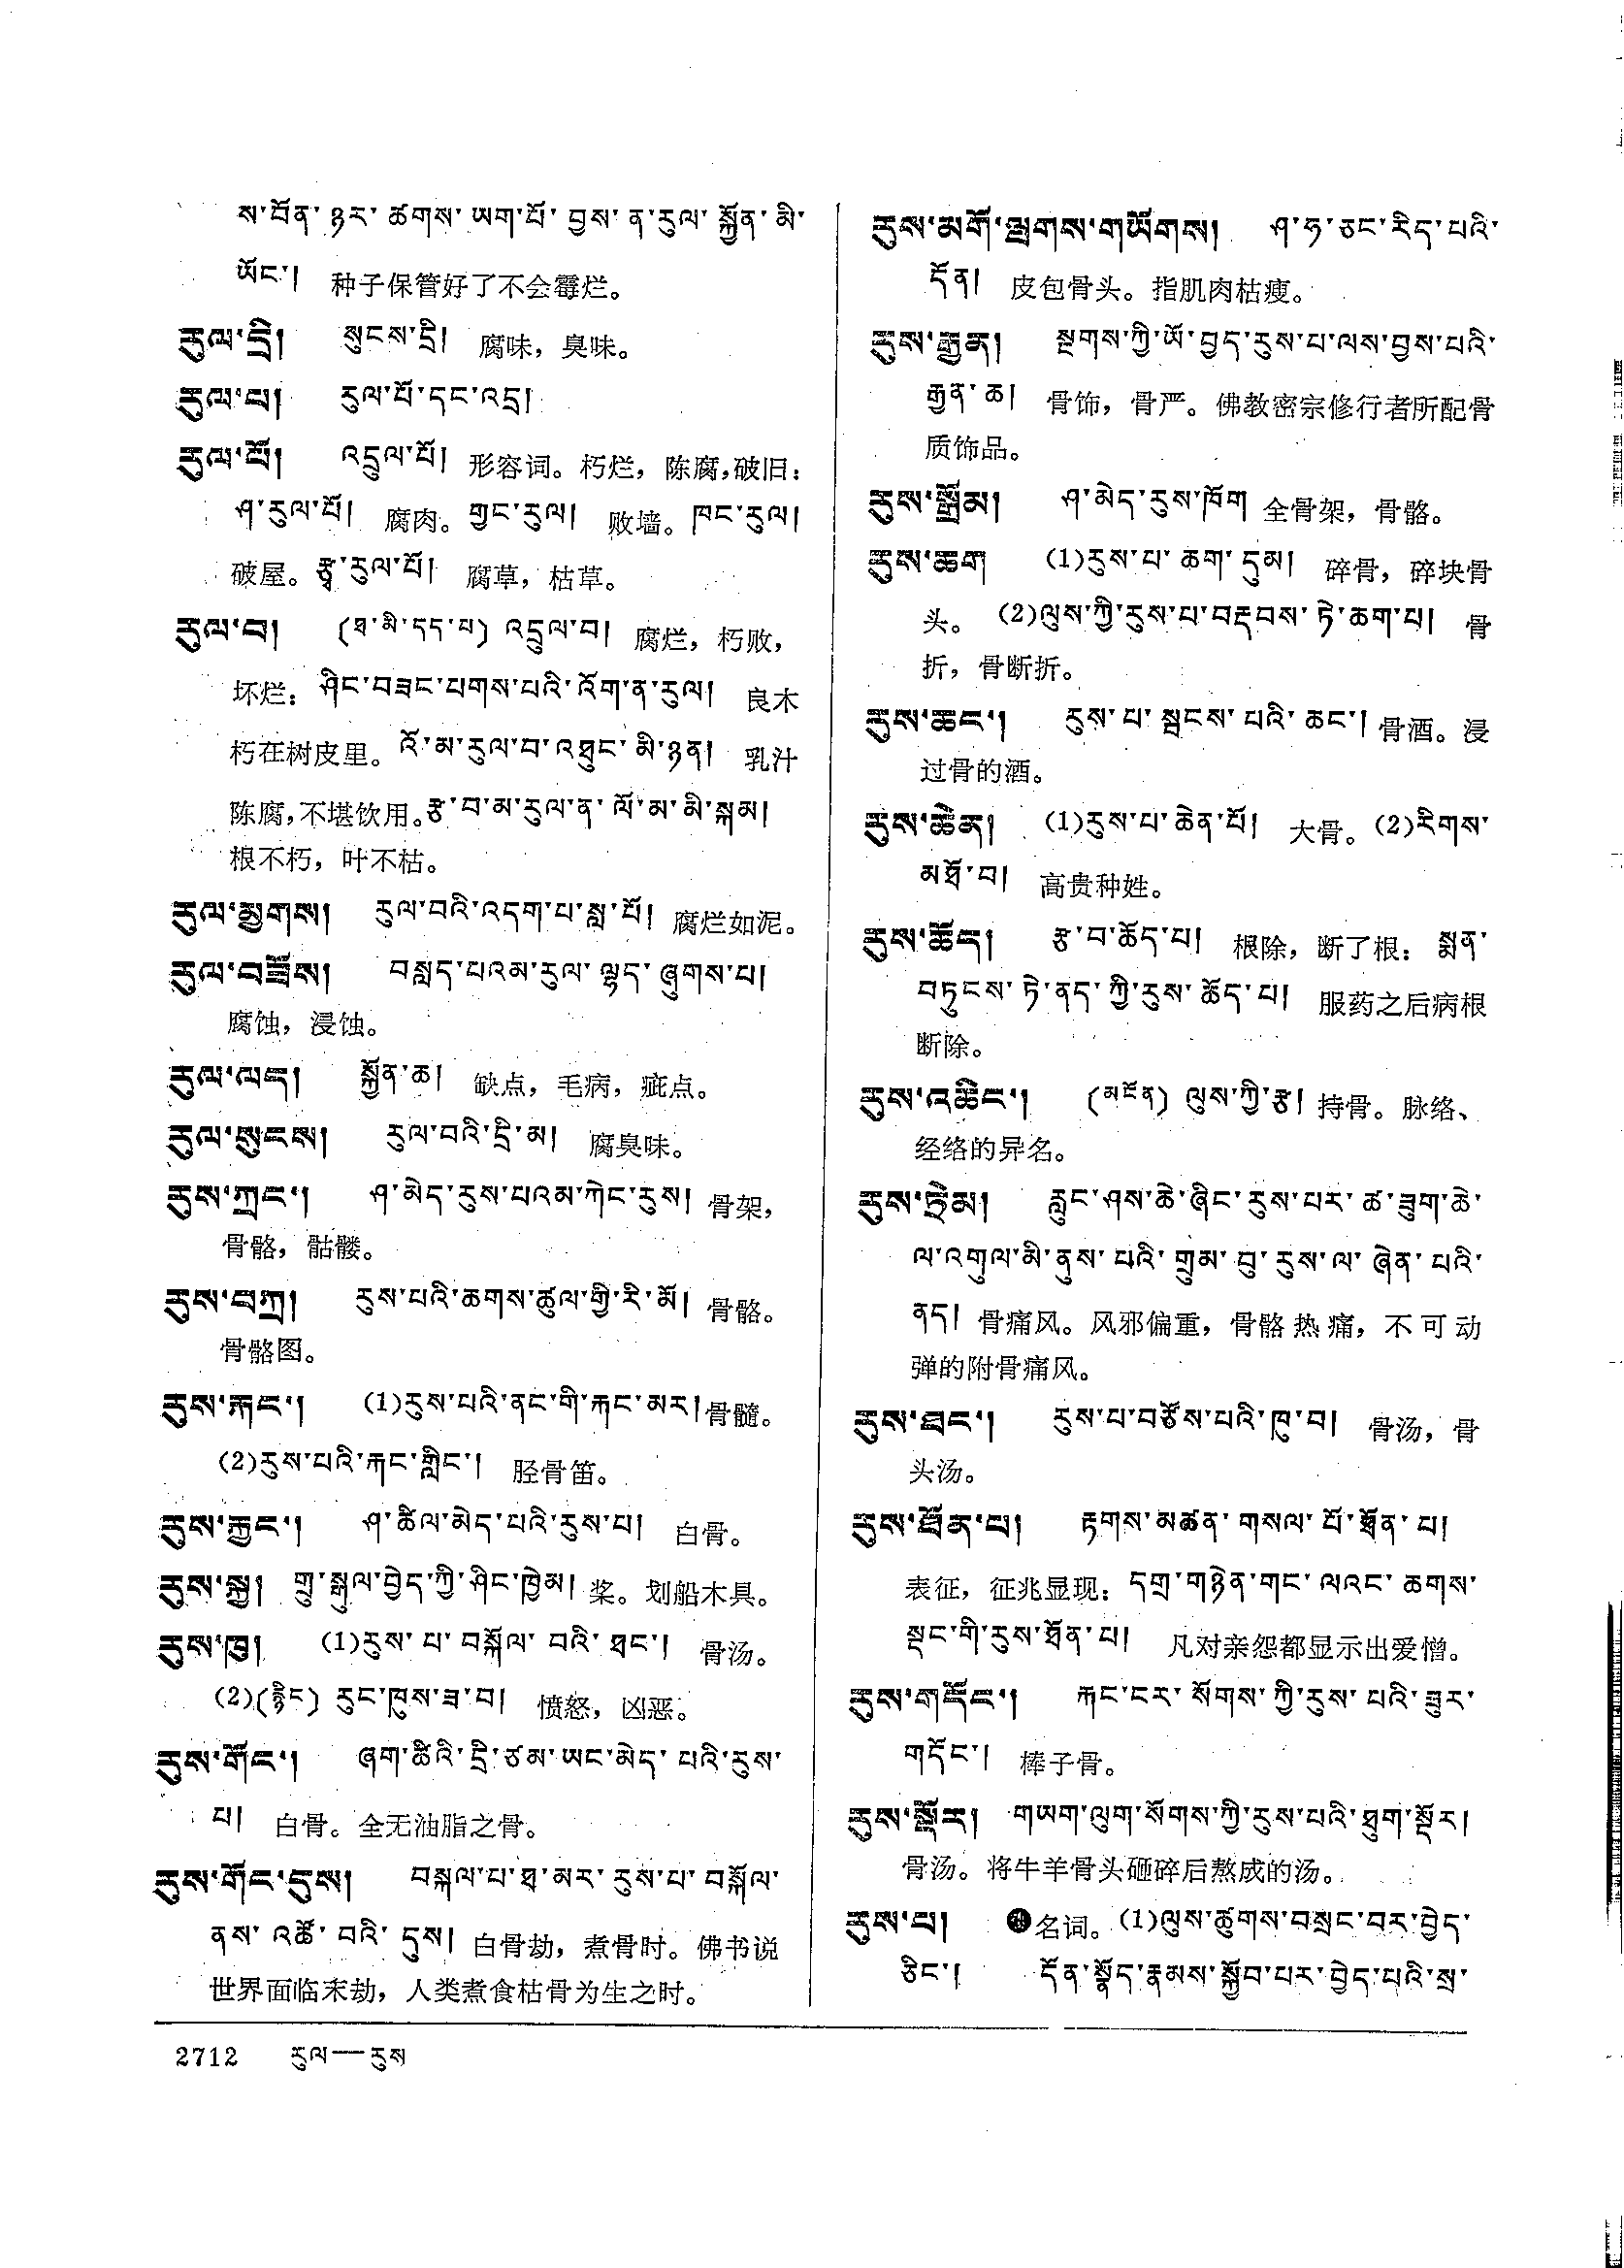 ས་བོན་ཉར་ཚགས་ཡག་པོ་བྱས་ན་རུལ་སྐྱོན་མི་
ཡོང་། 种子保管好了不会霉烂。
རུལ་དྲི། སུངས་དྲི། 腐味，臭味。
རུལ་པ། རུལ་པོ་དང་འདྲ།
རུལ་པོ། འདྲུལ་པོ། 形容词。朽烂，陈腐，破旧：
ཤ་རུལ་པོ། 腐肉。གྱང་རུལ། 败墙。ཁང་རུལ།
破屋。རྩྭ་རུལ་པོ། 腐草，枯草。
རུལ་བ། (ཐ་མི་དད་པ) འདྲུལ་བ། 腐烂，朽败，
坏烂：ཤིང་བཟང་པགས་པའི་འོག་ན་རུལ། 良木
朽在树皮里。འོ་མ་རུལ་བ་འཐུང་མི་ཉན། 乳汁
陈腐，不堪饮用。རྩ་བ་མ་རུལ་ན་ལོ་མ་མི་སྐམ།
根不朽，叶不枯。
རུལ་མྱགས། རུལ་བའི་འདག་པ་སླ་པོ། 腐烂如泥。
རུལ་བཟོས། བསླད་པའམ་རུལ་ལྷད་ཞུགས་པ།
腐蚀，浸蚀。
རུལ་ལད། སྐྱོན་ཆ། 缺点，毛病，疵点。
རུལ་སུངས། རུལ་བའི་དྲི་མ། 腐臭味。
རུས་ཀྲང་། ཤ་མེད་རུས་པའམ་ཀེང་རུས། 骨架，
骨骼，骷髅。
རུས་བཀྲ། རུས་པའི་ཆགས་ཚུལ་གྱི་རི་མོ། 骨骼。
骨骼图。
རུས་རྐང་། (1)རུས་པའི་ནང་གི་རྐང་མར།骨髓。
(2)རུས་པའི་རྐང་གླིང་། 胫骨笛。
རུས་རྐྱང་། ཤ་ཚིལ་མེད་པའི་རུས་པ། 白骨。
རུས་སྐྱ། གྲུ་སྒྲུལ་བྱེད་ཀྱི་ཤིང་ཁྱེམ། 桨。划船木具。
རུས་ཁུ། (1)རུས་པ་བསྐོལ་བའི་ཐང་། 骨汤。
(2)(རྙིང) རུང་ཁུས་ཟ་བ། 愤怒，凶恶。
རུས་གོང་། ཞག་ཚིའི་དྲི་ཙམ་ཡང་མེད་པའི་རུས་
པ། 白骨。全无油脂之骨。
རུས་གོང་དུས། བསྐལ་པ་ཐ་མར་རུས་པ་བསྐོལ་
ནས་འཚོ་བའི་དུས། 白骨劫，煮骨时。佛书说
世界面临末劫，人类煮食枯骨为生之时。
རུས་མགོ་ལྤགས་གཡོགས། ཤ་ཧ་ཅང་རིད་པའི་
དོན། 皮包骨头。指肌肉枯瘦。
རུས་རྒྱན། སྔགས་ཀྱི་ཡོ་བྱད་རུས་པ་ལས་བྱས་པའི་
རྒྱན་ཆ། 骨饰，骨严。佛教密宗修行者所配骨
质饰品。
རུས་སྒྲོམ། ཤ་མེད་རུས་ཁོག 全骨架，骨骼。
རུས་ཆག (1)རུས་པ་ཆག་དུམ། 碎骨，碎块骨
头。(2)ལུས་ཀྱི་རུས་པ་བརྡབས་ཏེ་ཆག་པ། 骨
折，骨断折。
རུས་ཆང་། རུས་པ་སྦངས་པའི་ཆང་། 骨酒。浸
过骨的酒。
རུས་ཆེན། (1)རུས་པ་ཆེན་པོ། 大骨。(2)རིགས་
མཐོ་བ། 高贵种姓。
རུས་ཆོད། རྩ་བ་ཆོད་པ། 根除，断了根：སྨན་
བཏུངས་ཏེ་ནད་ཀྱི་རུས་ཆོད་པ། 服药之后病根
断除。
རུས་འཆིང་། (མངོན) ལུས་ཀྱི་རྩ། 持骨。脉络、
经络的异名。
རུས་ཏྲེམ། རླུང་ཤས་ཆེ་ཞིང་རུས་པར་ཚ་ཟུག་ཆེ་
ལ་འགུལ་མི་ནུས་པའི་གྲུམ་བུ་རུས་ལ་ཞེན་པའི་
ནད། 骨痛风。风邪偏重，骨骼热痛，不可动
弹的附骨痛风。
རུས་ཐང་། རུས་པ་བཙོས་པའི་ཁུ་བ། 骨汤，骨
头汤。
རུས་ཐོན་པ། རྟགས་མཚན་གསལ་པོ་ཐོན་པ།
表征，征兆显现：དགྲ་གཉེན་གང་ལའང་ཆགས་
སྡང་གི་རུས་ཐོན་པ། 凡对亲怨都显示出爱憎。
རུས་གདོང་། རྐང་ངར་སོགས་ཀྱི་རུས་པའི་ཟུར་
གདོང་། 棒子骨。
རུས་སྡོར། གཡག་ལུག་སོགས་ཀྱི་རུས་པའི་ཐུག་སྡོར།
骨汤。将牛羊骨头砸碎后熬成的汤。
རུས་པ། 名词。(1)ལུས་ཚུགས་བསྲང་བར་བྱེད་
ཅིང་། དོན་སྣོད་རྣམས་སྐྱོབ་པར་བྱེད་པའི་སྲ་
2712 རུལ—རུས